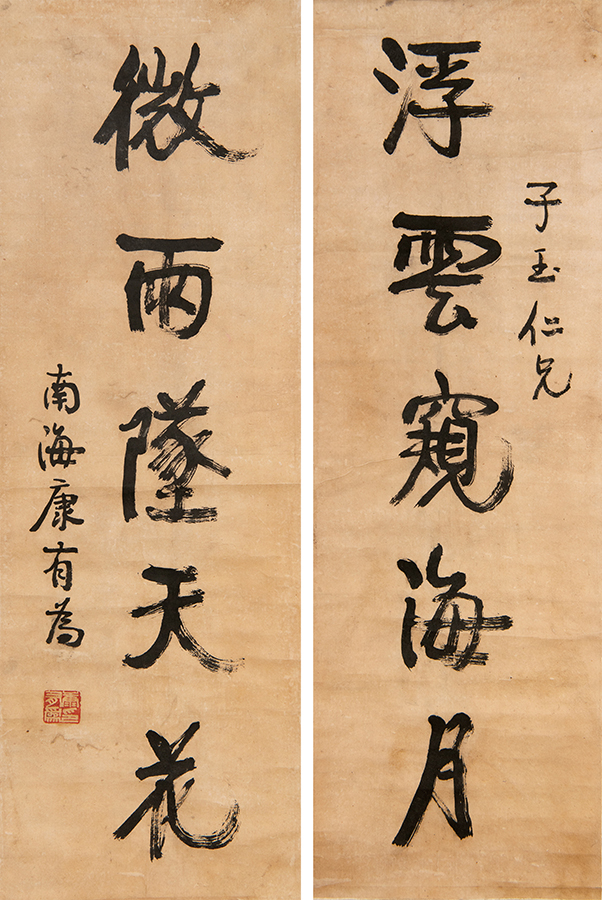 子玉仁兄
浮雲窺海月
微雨墜天花
南海康有為